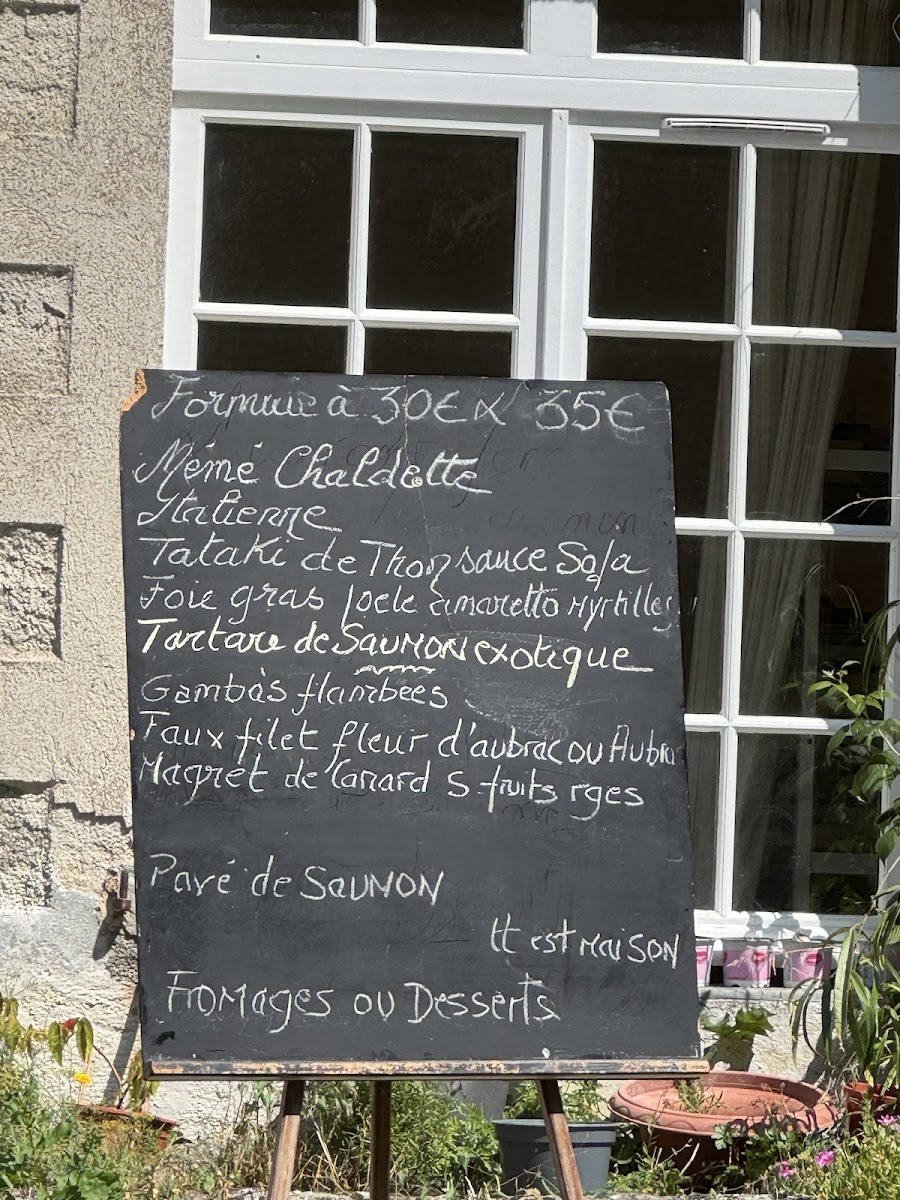 Formule à 30€ x 35€
Mémé Chaldette
Italienne
Tataki de Thon sauce Soja
Foie gras poele amaretto Myrtilles
Tartare de SAUMON exotique
Gambas flambées
Faux filet fleur d'aubrac ou Aubra
Magret de Canard S fruits rges
Pavé de SAUMON
tt est MAiSON
FROMAges ou Desserts